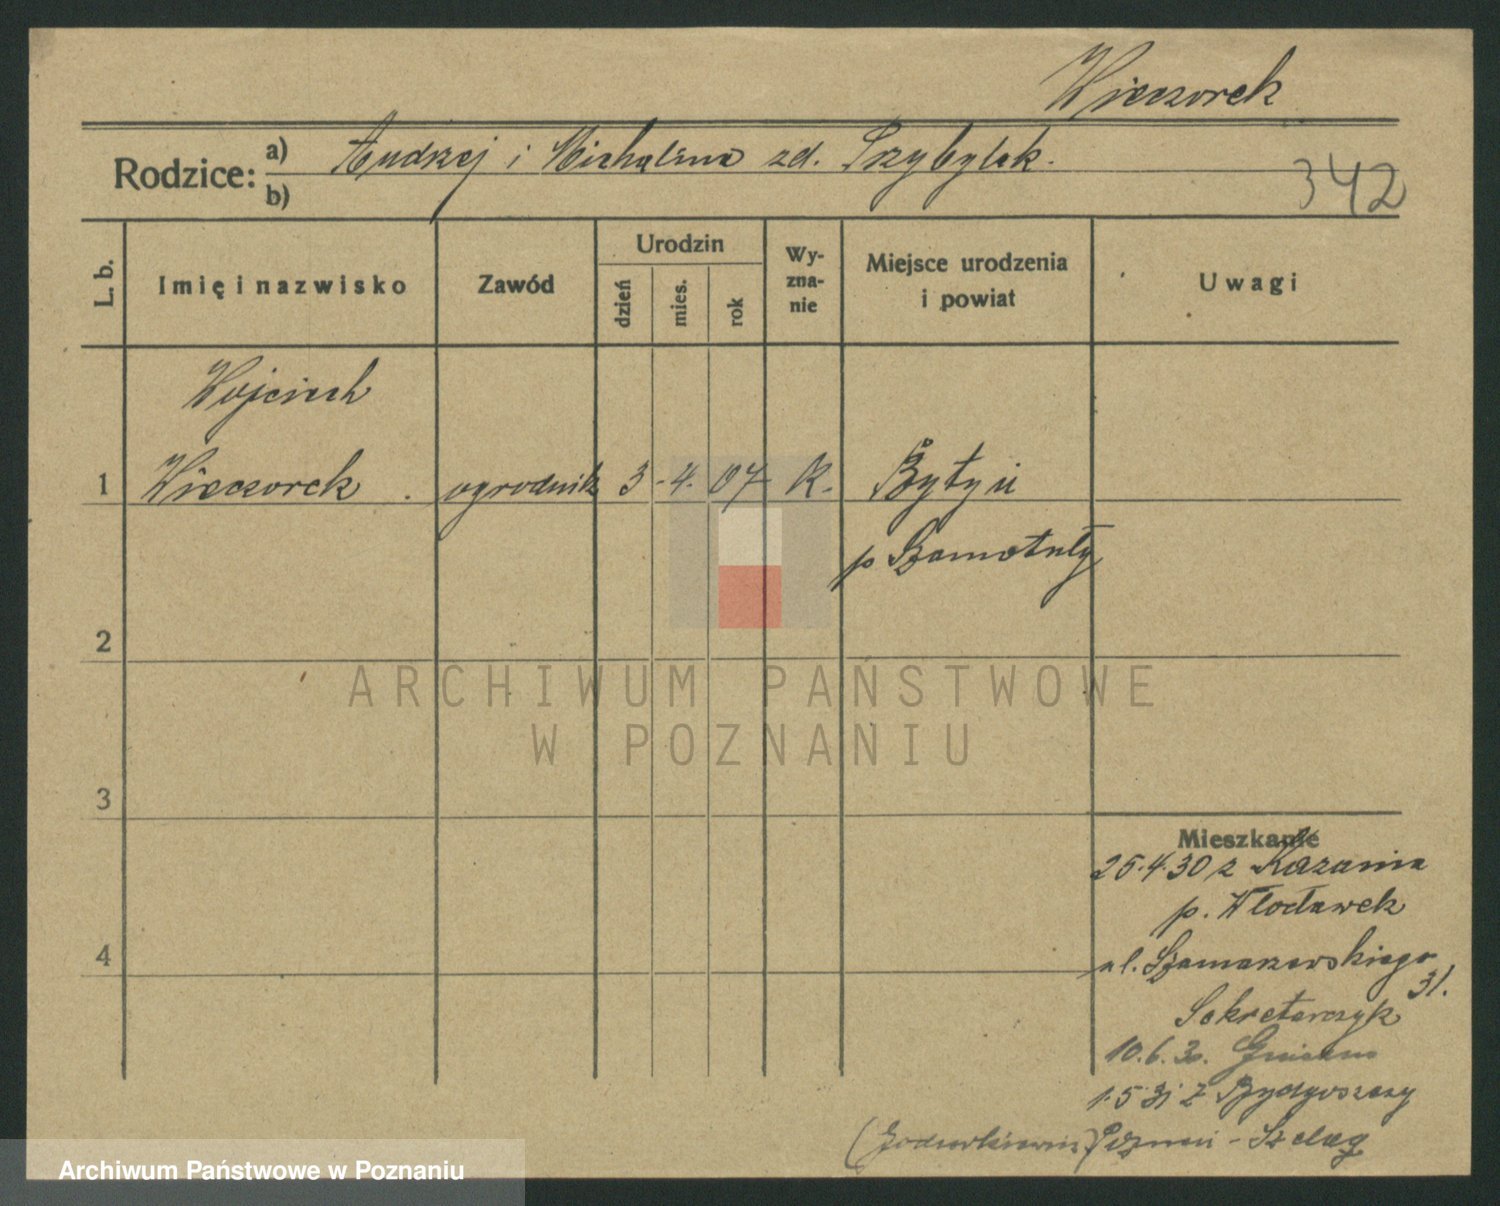 Wieczorek
Rodzice: a) Andrzej i Michalina zd. Przybylak.
b)
342
L. b.
Imię i nazwisko
Zawód
Urodzin
dzień
mies.
rok
Wy-
zna-
nie
Miejsce urodzenia
i powiat
Uwagi
Wojciech
1 Wieczorek . ogrodnik 3 - 4. 07 K. Bytyń
p Szamotuły
2
ARCHIWUM PAŃSTWOWE
W POZNANIU
3
Mieszkanie
25.4.30 z Kazania
p. Włocławek
4
ul. Szamarzewskiego
31.
Sekretarczyk
10.6.30. Gniezno
1.5 31 z Bydgoszczy
Poznań - Szeląg
Archiwum Państwowe w Poznaniu